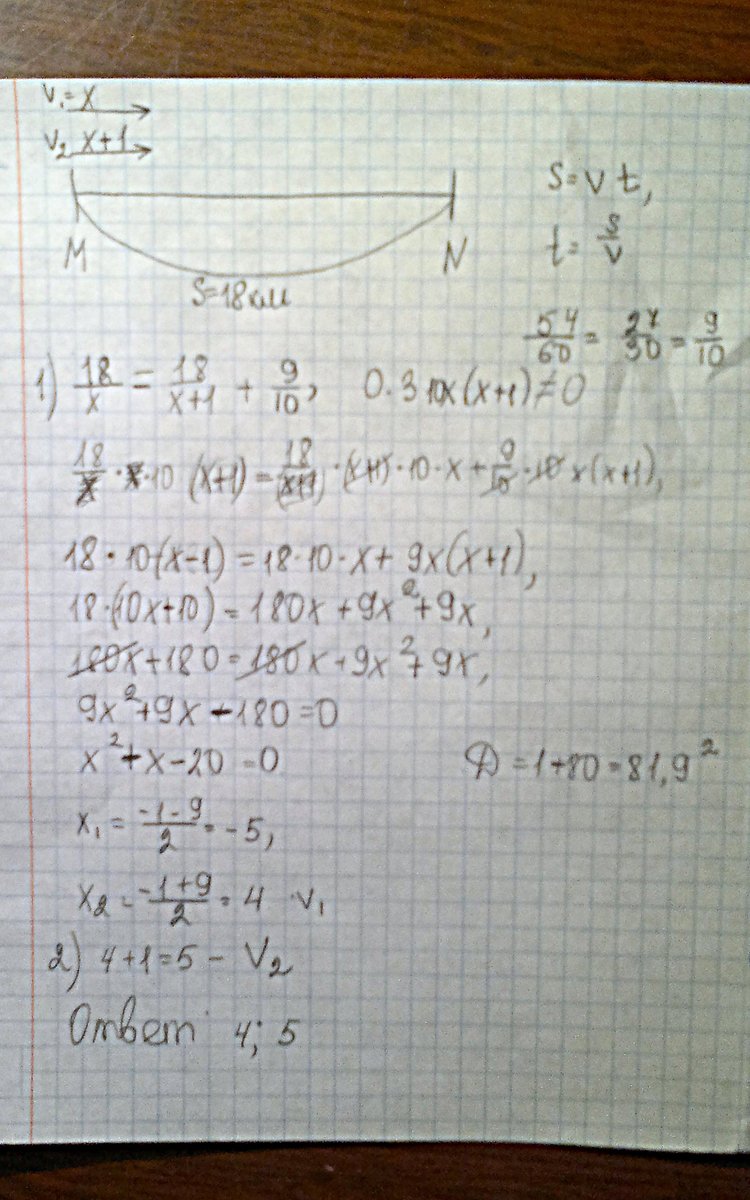 V₁=x
V₂ x+1
S=Vt,
M N
t=S/V
S=18км
54/60=27/30=9/10
1) 18/x=18/(x+1)+9/10, О.З 10x(x+1)≠0
18/x·x·10(x+1)=18/(x+1)·(x+1)·10·x+9/10·10x(x+1),
18·10(x-1)=18·10·x+9x(x+1),
18·(10x+10)=180x+9x²+9x,
180x+180=180x+9x²+9x,
9x²+9x-180=0
x²+x-20=0 D=1+80=81,9²
x₁=(-1-9)/2=-5,
x₂=(-1+9)/2=4 V₁
2) 4+1=5-V₂
Ответ 4; 5